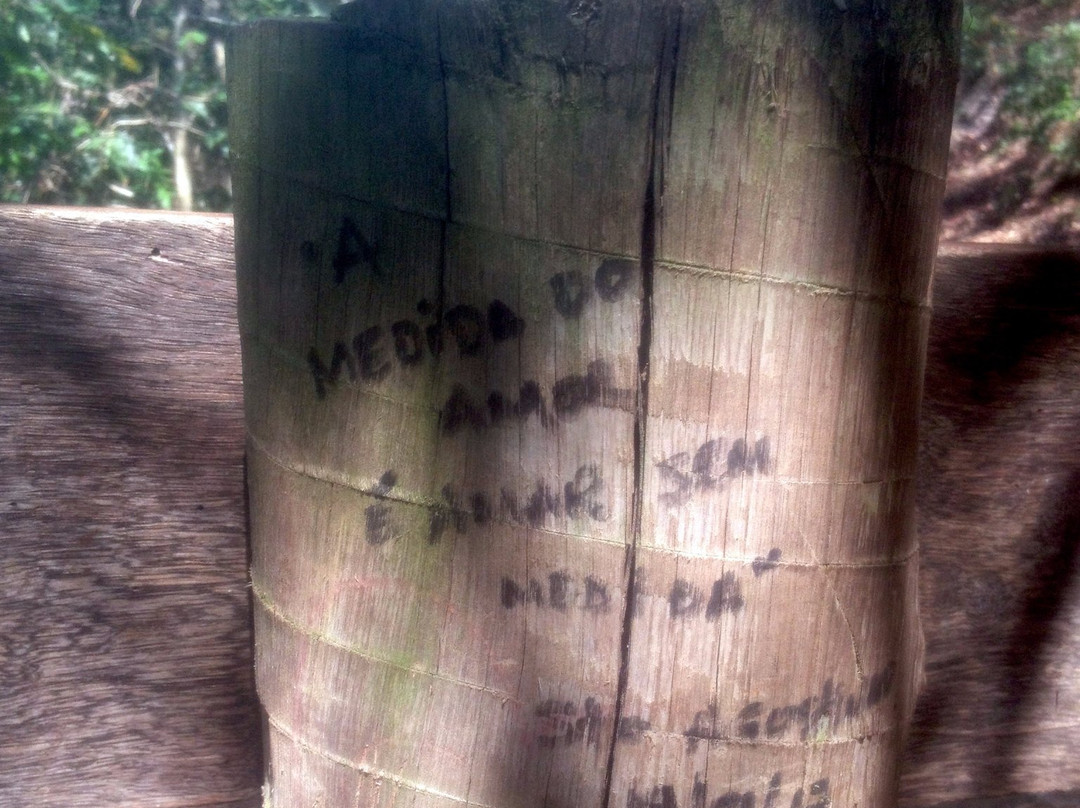 "A
MEDIDA DO
AMOR
É AMAR SEM
MEDIDA"